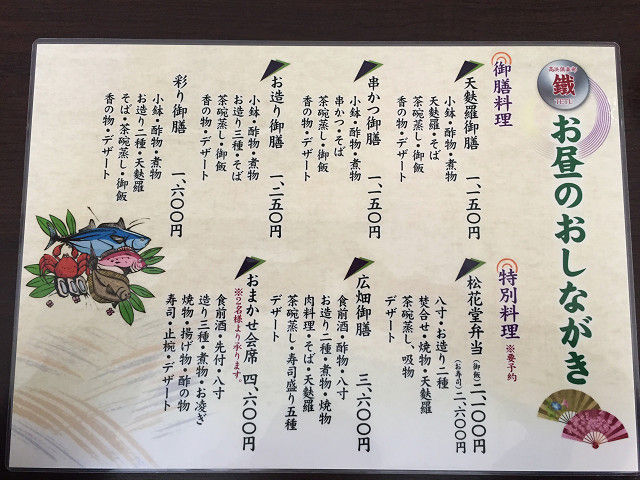 高浜倶楽部
鐵
TETU
お昼のおしながき
御膳料理
天麩羅御膳 一、一五〇円
小鉢・酢物・煮物
天麩羅・そば
茶碗蒸し・御飯
香の物・デザート
串かつ御膳 一、一五〇円
小鉢・酢物・煮物
串かつ・そば
茶碗蒸し・御飯
香の物・デザート
お造り御膳 一、二五〇円
小鉢・酢物・煮物
お造り三種・そば
茶碗蒸し・御飯
香の物・デザート
彩り御膳 一、六〇〇円
小鉢・酢物・煮物
お造り二種・天麩羅
そば・茶碗蒸し・御飯
香の物・デザート
特別料理 ※要予約
松花堂弁当 (御飯)二、一〇〇円
(お寿司)二、六〇〇円
八寸・お造り二種
焚合せ・焼物・天麩羅
茶碗蒸し、吸物
デザート
広畑御膳 三、六〇〇円
食前酒・酢物・八寸
お造り二種・煮物・焼物
肉料理・そば・天麩羅
茶碗蒸し・寿司盛り五種
デザート
おまかせ会席 四、六〇〇円
※2名様より承ります。
食前酒・先付・八寸
造り三種・煮物・お凌ぎ
焼物・揚げ物・酢の物
寿司・止椀・デザート